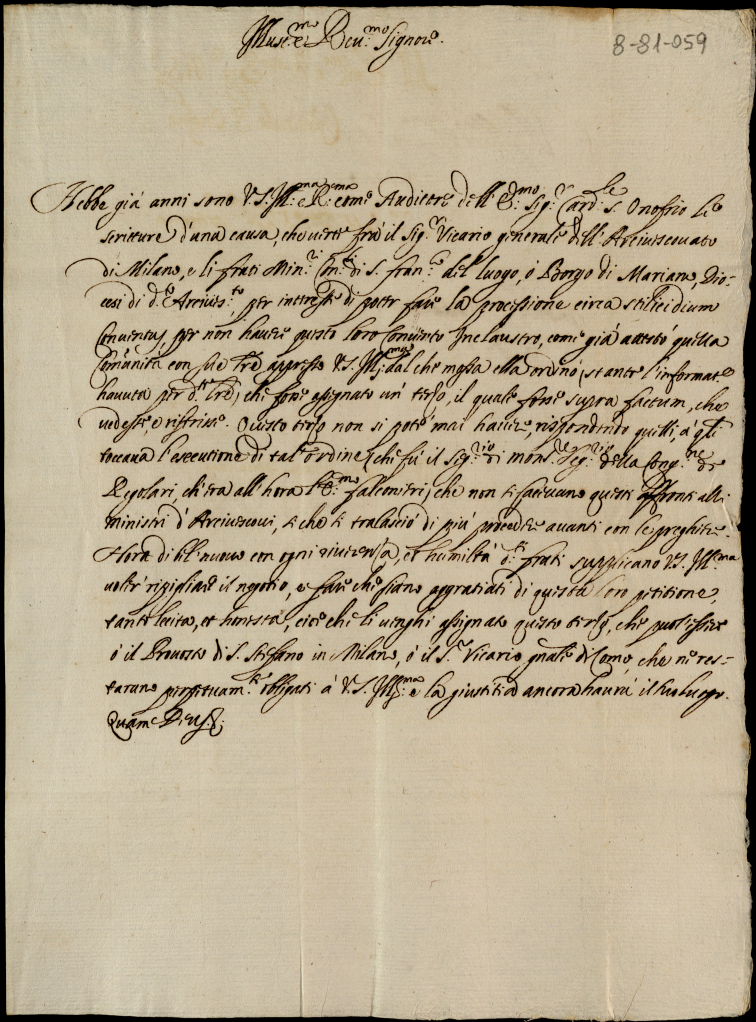 Illust.mo e Reu.mo Signore.
8-81-059
Hebbe già anni sono V.S. Ill.ma e R.ma come Auditore dell' E.mo Sig.r Card.le S. Onofrio le
scritture d'una causa, che verte frà il Sig.r Vicario generale dell' Arciuescouato
di Milano, e li frati Min.ri Con.li di S. fran.co del luogo, ò Borgo di Mariano, Dio-
cesi di d.o Arciues.to, per interesse di poter fare la processione circa stilicidium
Conuentus, per non hauere questo loro Conuento Inclaustro, come già attestò quella
Comunità con sue lre appresso V.S. Ill.ma, dal che mossa ella ordinò (stante l'informat.e
hauuta per d.e lre) che fosse assignato un' terso, il quale fosse supra factum, che
uedesse, e riferisse. Questo terso non si potè mai hauere, rispondendo quelli, à q.li
toccaua l'essecutione di tal' ordine (che fù il Seg.rio di mons.re Seg.rio della Cong.ne de
Regolari, ch'era all' hora l'E.mo Falconieri) che non si faceuano questi affronti alli
ministri d'Arciuescoui, si che si tralasciò di più procedere auanti con le preghiere.
Hora di bel nuouo con ogni riuerensa, et humiltà d.ti frati supplicano V.S. Ill.ma
voler' ripigliare il negotio, e fare che siano aggratiati di questa loro petitione,
tanto lecita, et honesta, cioè che li uenghi assignato questo terso, che puol' essere
ò il Preuosto di S. Stefano in Milano, ò il S.r Vicario gnale di Como, che ne res-
taranno perpetuam.te obligati à V.S. Ill.ma e la giustitia ancora haurà il suo luogo.
Quam Deus &.